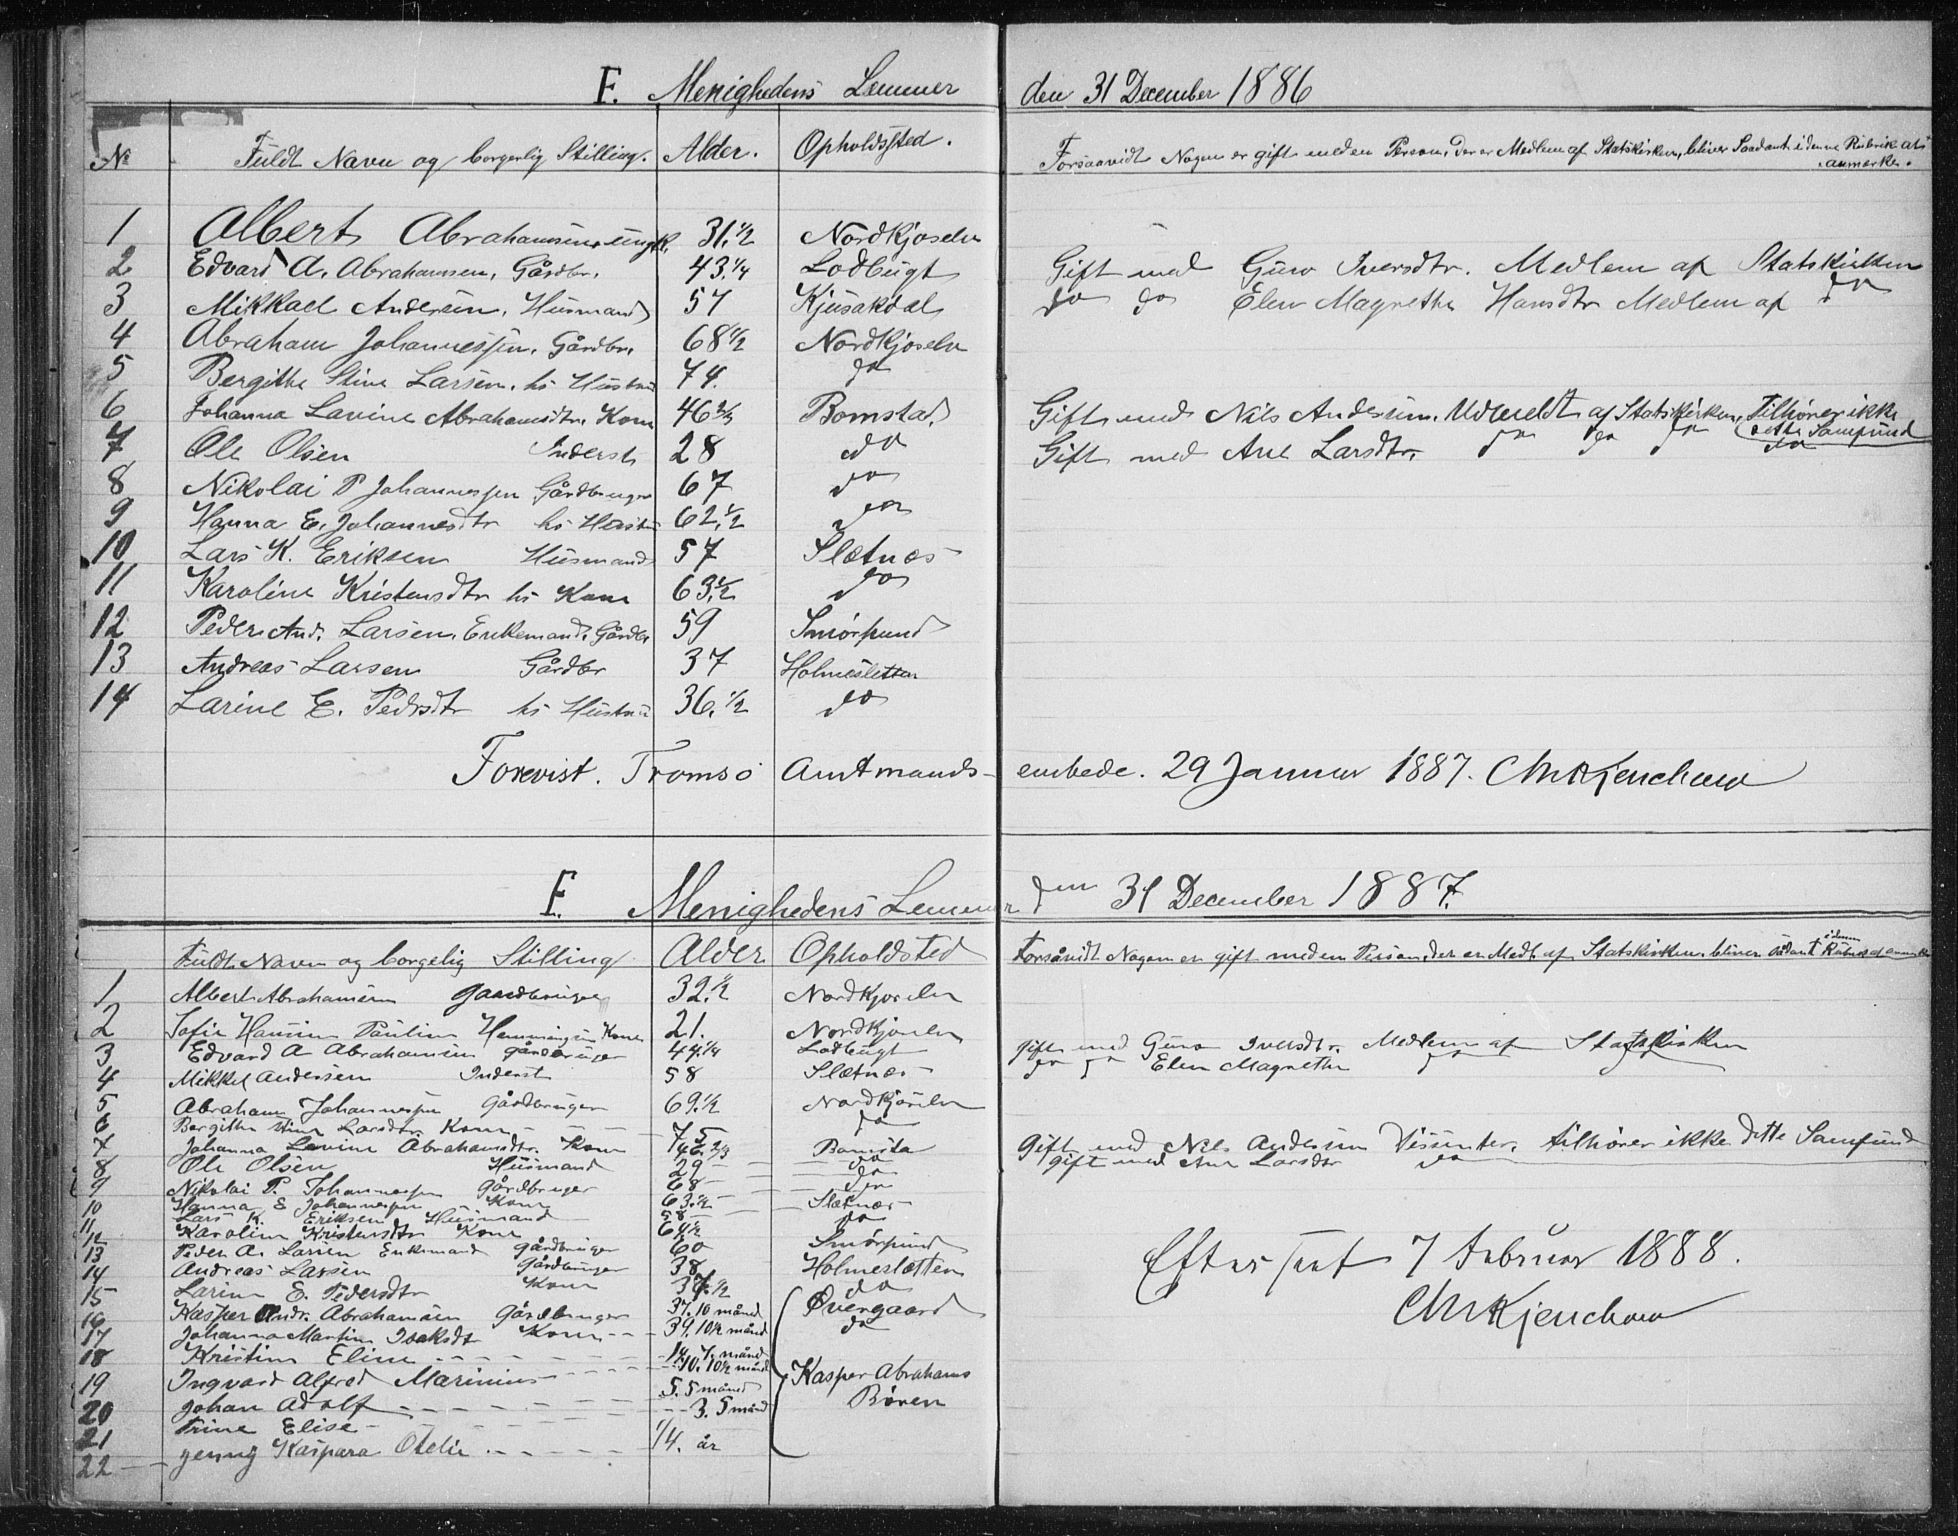 F. Menighedens Lemmer den 31 December 1886
No Fuldt Navn og borgerlig Stilling. Alder. Opholdssted. Forsaavidt Nogen er gift med en Person, der er Medlem af Statskirken, bliver Saadant i denne Rubrik at
anmærke.
1 Albert Abrahamsen, ungk. 31.1/2 Nordkjoselv
2 Edvard A. Abrahamsen, Gårdbr. 43.1/4 Lodbugt Gift med Guro Iversdtr. Medlem af Statskirken
3 Mikkael Andersen, Husmand 57 Kjusakdal do do Elen Magrethe Hansdtr Medlem af do
4 Abraham Johannessen. Gårdbr. 68 1/2 Nordkjoselv
5 Bergithe Stine Larsen. hs Hustru 74. do
6 Johanna Lavine Abrahamsdtr. Kone 46 2/3 Bomstad Gift med Nils Andersen. Udmeldt af Statskirken, Tilhører ikke
dette Samfund
7 Ole Olsen Inderst 28 do Gift med Ane Larsdtr. do do do do
8 Nikolai P Johannessen Gårdbruger 67 do
9 Hanna E. Johannesdtr hs Hustru 62.1/2 do
10 Lars K. Eriksen Husmand 57 Slætnæs
11 Karoline Kristensdtr hs Kone 63.1/2 do
12 Peder And. Larsen, Enkemand, Gårdbr 59 Smörsund
13 Andreas Larsen Gårdbr 37 Holmesletten
14 Larine E. Pedrsdtr hs Hustru 36.1/2 do
Forevist. Tromsö Amtmands-embede. 29 Januar 1887. Chr Kjerschow
F. Menighedens Lemmer den 31 December 1887.
Fuldt Navn og borgelig Stilling Alder Opholdsted Forsåvidt Nogen er gift med en Person, der er Medl. af Statskirken, bliver sådant i denne Rubrik at
1 Albert Abrahamsen Gaardbruger 32.1/2 Nordkjoselv
2 Sofie Hansine Pauline Hemmingsen Kone 21. Nordkjoselv
3 Edvard A Abrahamsen gårdbruger 44.1/4 Lodbugt gift med Guro Iversdtr. Medlem af Statskirken
4 Mikkel Andersen Inderst 58 Slætnæs do do Elen Magrethe do
5 Abraham Johannessen Gårdbruger 69.1/2 Nordkjoselv
6 Bergithe Stine Larsdtr Kone 75 do
7 Johanna Lavine Abrahamsdtr. Kone 46.2/3 Bomsta Gift med Nils Andersen Dissenter. tilhører ikke dette Samfund
8 Ole Olsen Husmand 29 do gift med Ane Larsdtr do
9 Nikolai P. Johannessen Gårdbruger 68 do
10 Hanna E Johannessen Kone 63.1/2 do
11 Lars K. Eriksen Husmand 58 Slætnæs
12 Karoline Kristensdtr Kone 64 1/2 do
13 Peder A. Larsen Enkemand Gårdbruger 60 Smörsund
14 Andreas Larsen Gårdbruger 38 Holmeslætten
15 Larine E. Pedersdtr Kone 37.1/2 do
16 Kasper Andr. Abrahamsen Gårdbruger 37.10 måned Øvergaard
17 Johanna Martine Isaksdt Kone 39.10 1/2 månd do
18 Kristine Eline 14. 7. månd
19 Ingvard Alfred Marinius 10. 10 1/2 månd Kasper Abrahams
20 Johan Adolf 5. 5 måned Børen
21 Trine Elise 3. 5 månd
22 Jenny Kaspara Otelie 1/4. år
Efterseet 7 Februar 1888.
Chr Kjerschow